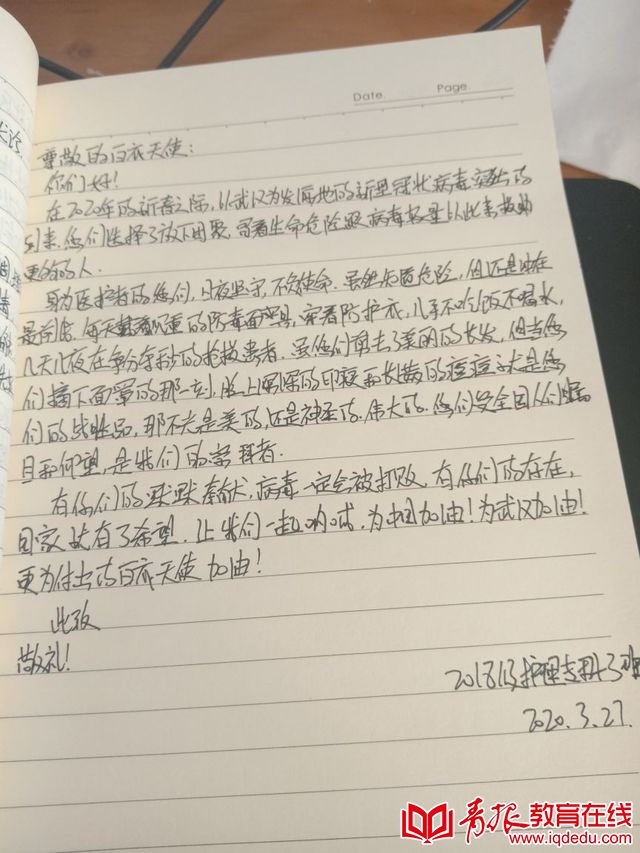 Date. Page.
尊敬的白衣天使：
你们好！
在2020年的新春之际，以武汉为发展地的新型冠状病毒突出的
到来。您们选择了放下团聚，冒着生命危险跟病毒较量以此来救助
更多的人。
身为医护者的您们，日夜坚守，不负使命。虽然知道危险，但还是冲在
最前线。每天戴着沉重的防毒面罩，穿着防护衣，几乎不吃饭不喝水，
几天几夜在争分夺秒的抢救患者。虽您们剪去了美丽的长发，但当您
们摘下面罩的那一刻，脸上深深的印痕和长满的痘痘才是您
们的战胜品，那不光是美的，还是神圣的，伟大的。您们受全国人们瞩
目和仰望，是我们的学习者。
有你们的默默奉献，病毒一定会被打败。有你们的存在，
国家就有了希望。让我们一起呐喊，为中国加油！为武汉加油！
更为付出的白衣天使加油！
此致
敬礼！
2018级护理专科3班
2020.3.27.
青报教育在线
www.iqdedu.com